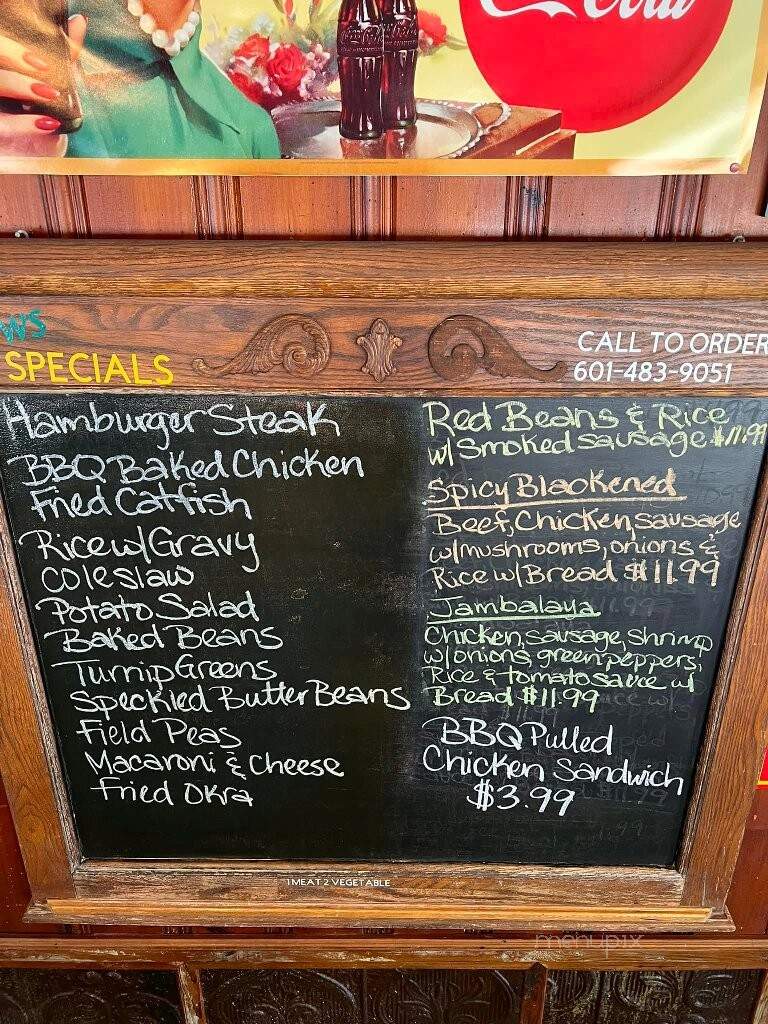 Coca-Cola
W'S
SPECIALS
CALL TO ORDER
601-483-9051
Hamburger Steak
BBQ Baked Chicken
Fried Catfish
Rice w/ Gravy
Coleslaw
Potato Salad
Baked Beans
Turnip Greens
Speckled Butter Beans
Field Peas
Macaroni & Cheese
Fried Okra
Red Beans & Rice
w/ Smoked sausage $11.99
Spicy Blackened
Beef, Chicken, sausage
w/ mushrooms, onions &
Rice w/ Bread $11.99
Jambalaya
Chicken, sausage, shrimp
w/ onions, green peppers,
Rice & tomato sauce w/
Bread $11.99
BBQ Pulled
Chicken Sandwich
$3.99
1 MEAT 2 VEGETABLE
menupix